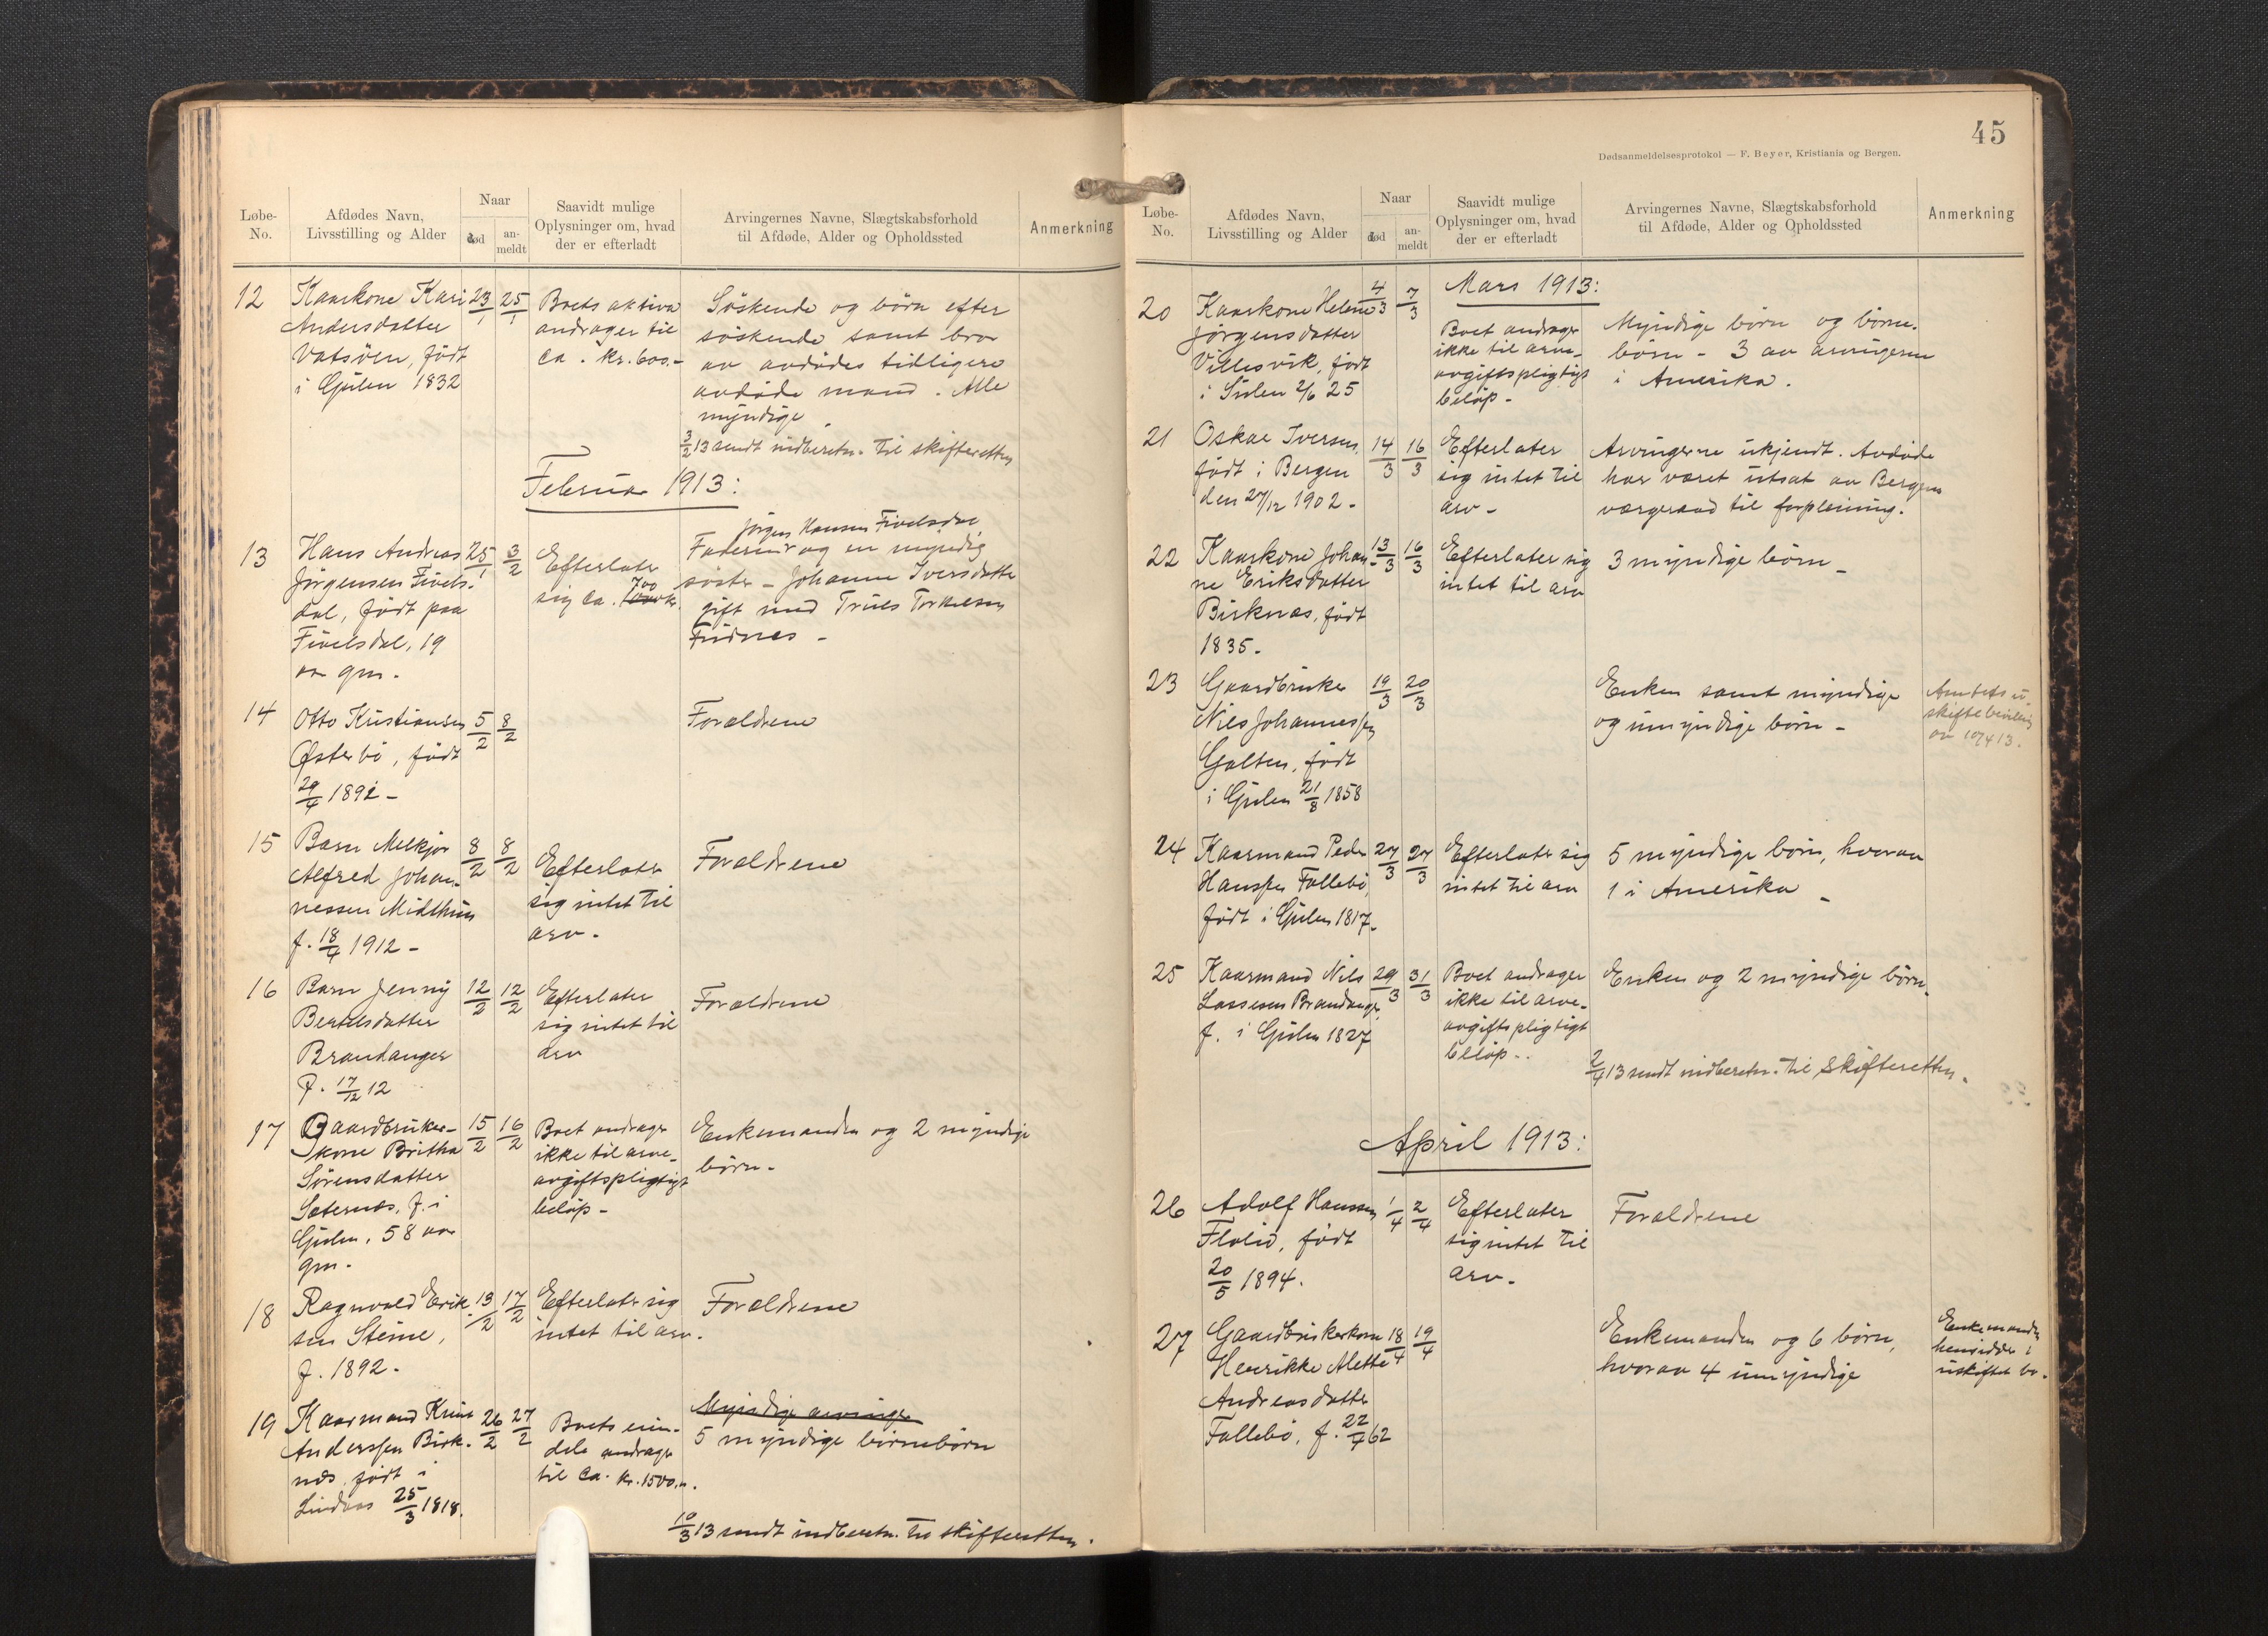 Løbe-
No.
Afdødes Navn,
Livsstilling og Alder
Naar
død
an-
meldt
Saavidt mulige
Oplysninger om, hvad
der er efterladt
Arvingernes Navne, Slægtskabsforhold
til Afdøde, Alder og Opholdssted
Anmerkning
12
Kaarkone Kari
Andersdatter
Vatsöen, född
i Gulen 1832
23/1
25/1
Boets aktiva
andrager til
ca. kr. 600.-
Söskende og börn efter
söskende samt bror
av avdödes tidligere
avdöde mand. Alle
myndige
3/2 13 sendt indberetn. til skifteretten
Februar 1913:
13
Hans Andreas
Jörgensen Fivels-
dal, född paa
Fivelsdal, 19
aar gm.
25/1
3/2
Efterlater
sig ca. 700 kr.
Jörgen Hansen Fivelsdal
Faderen og en myndig
söster - Johanne Iversdatter
gift med Truls Torkelsen
14
Otto Kristiansen
Østerbö, född
29/4 1892 -
5/2
8/2
Forældrene
15
Barn Melkjor
Alfred Johan-
nessen Midthun
f. 18/4 1912 -
8/2
8/2
Efterlater
sig intet til
arv.
Forældrene
16
Barn Jenny
Bertilsdatter
Brandanger
f. 17/12 12
12/2
12/2
Efterlater
sig intet til
arv
Forældrene
17
Gaardbruker-
kone Britha
Sörensdatter
Sæternes, f. i
Gulen, 58 aar
gm.
15/2
16/2
Boet andrager
ikke til arve-
avgiftspligtigt
belöp -
Enkemanden og 2 myndige
börn -
18
Ragnvald Erik-
sen Steine,
f. 1892 -
13/2
17/2
Efterlater sig
intet til arv.
Forældrene
19
Kaarmand
Anderssen Birk-
næs född i
Lindaas 25/3 1818.
26/2
27/2
Boets eien-
dele andrager
til ca. kr. 1500,-.
Myndige arvinger
5 myndige börnebörn
10/3 13 sendt indberetn. til skifteretten.
45
Dødsanmeldelsesprotokol — F. Beyer, Kristiania og Bergen.
Løbe-
No.
Afdødes Navn,
Livsstilling og Alder
Naar
død
an-
meldt
Saavidt mulige
Oplysninger om, hvad
der er efterladt
Arvingernes Navne, Slægtskabsforhold
til Afdøde, Alder og Opholdssted
Anmerkning
Mars 1913:
20
Kaarkone Helene
Jörgensdatter
Villesvik, född
i Gulen 2/6 25
4/3
7/3
Boet andrager
ikke til arve-
avgiftspligtigt
belöp -
Myndige börn og börne-
börn - 3 av arvingerne
i Amerika.
21
Oskar Iversen,
född i Bergen
den 27/12 1902 -
14/3
16/3
Efterlater
sig intet til
arv -
Arvingerne ukjendt. Avdöde
har været utsat av Bergens
værgeraad til forpleining.
22
Kaarkone Johan-
ne Eriksdatter
Birknæs, född
1835 -
13/3
16/3
Efterlater sig
intet til arv
3 myndige börn -
23
Gaardbruker
Nils Johannessen
Galten, född
i Gulen 21/8 1858
19/3
20/3
Enken samt myndige
og umyndige börn -
Amtets u-
skiftebevilling
av 10/4 13.
24
Kaarmand Peder
Hanssen Fallebö,
född i Gulen 1817 -
27/3
27/3
Efterlater sig
intet til arv
5 myndige börn, hvorav
1 i Amerika -
25
Kaarmand Nils
Lassesen Brandanger,
f. i Gulen 1827
29/3
31/3
Boet andrager
ikke til arve-
avgiftspligtigt
belöp -
Enken og 2 myndige börn.
2/4 13 sendt indberetn. til Skifteretten.
April 1913:
26
Adolf Hanssen
Flolid, född
20/5 1894.
1/4
2/4
Efterlater
sig intet til
arv.
Forældrene
27
Gaardbrukerkone
Henrikke Alette
Andreasdatter
Fallebö, f. 22/4 62
18/4
19/4
Enkemanden og 6 börn,
hvorav 4 umyndige
Enkemanden
hensidder i
uskiftet bo.